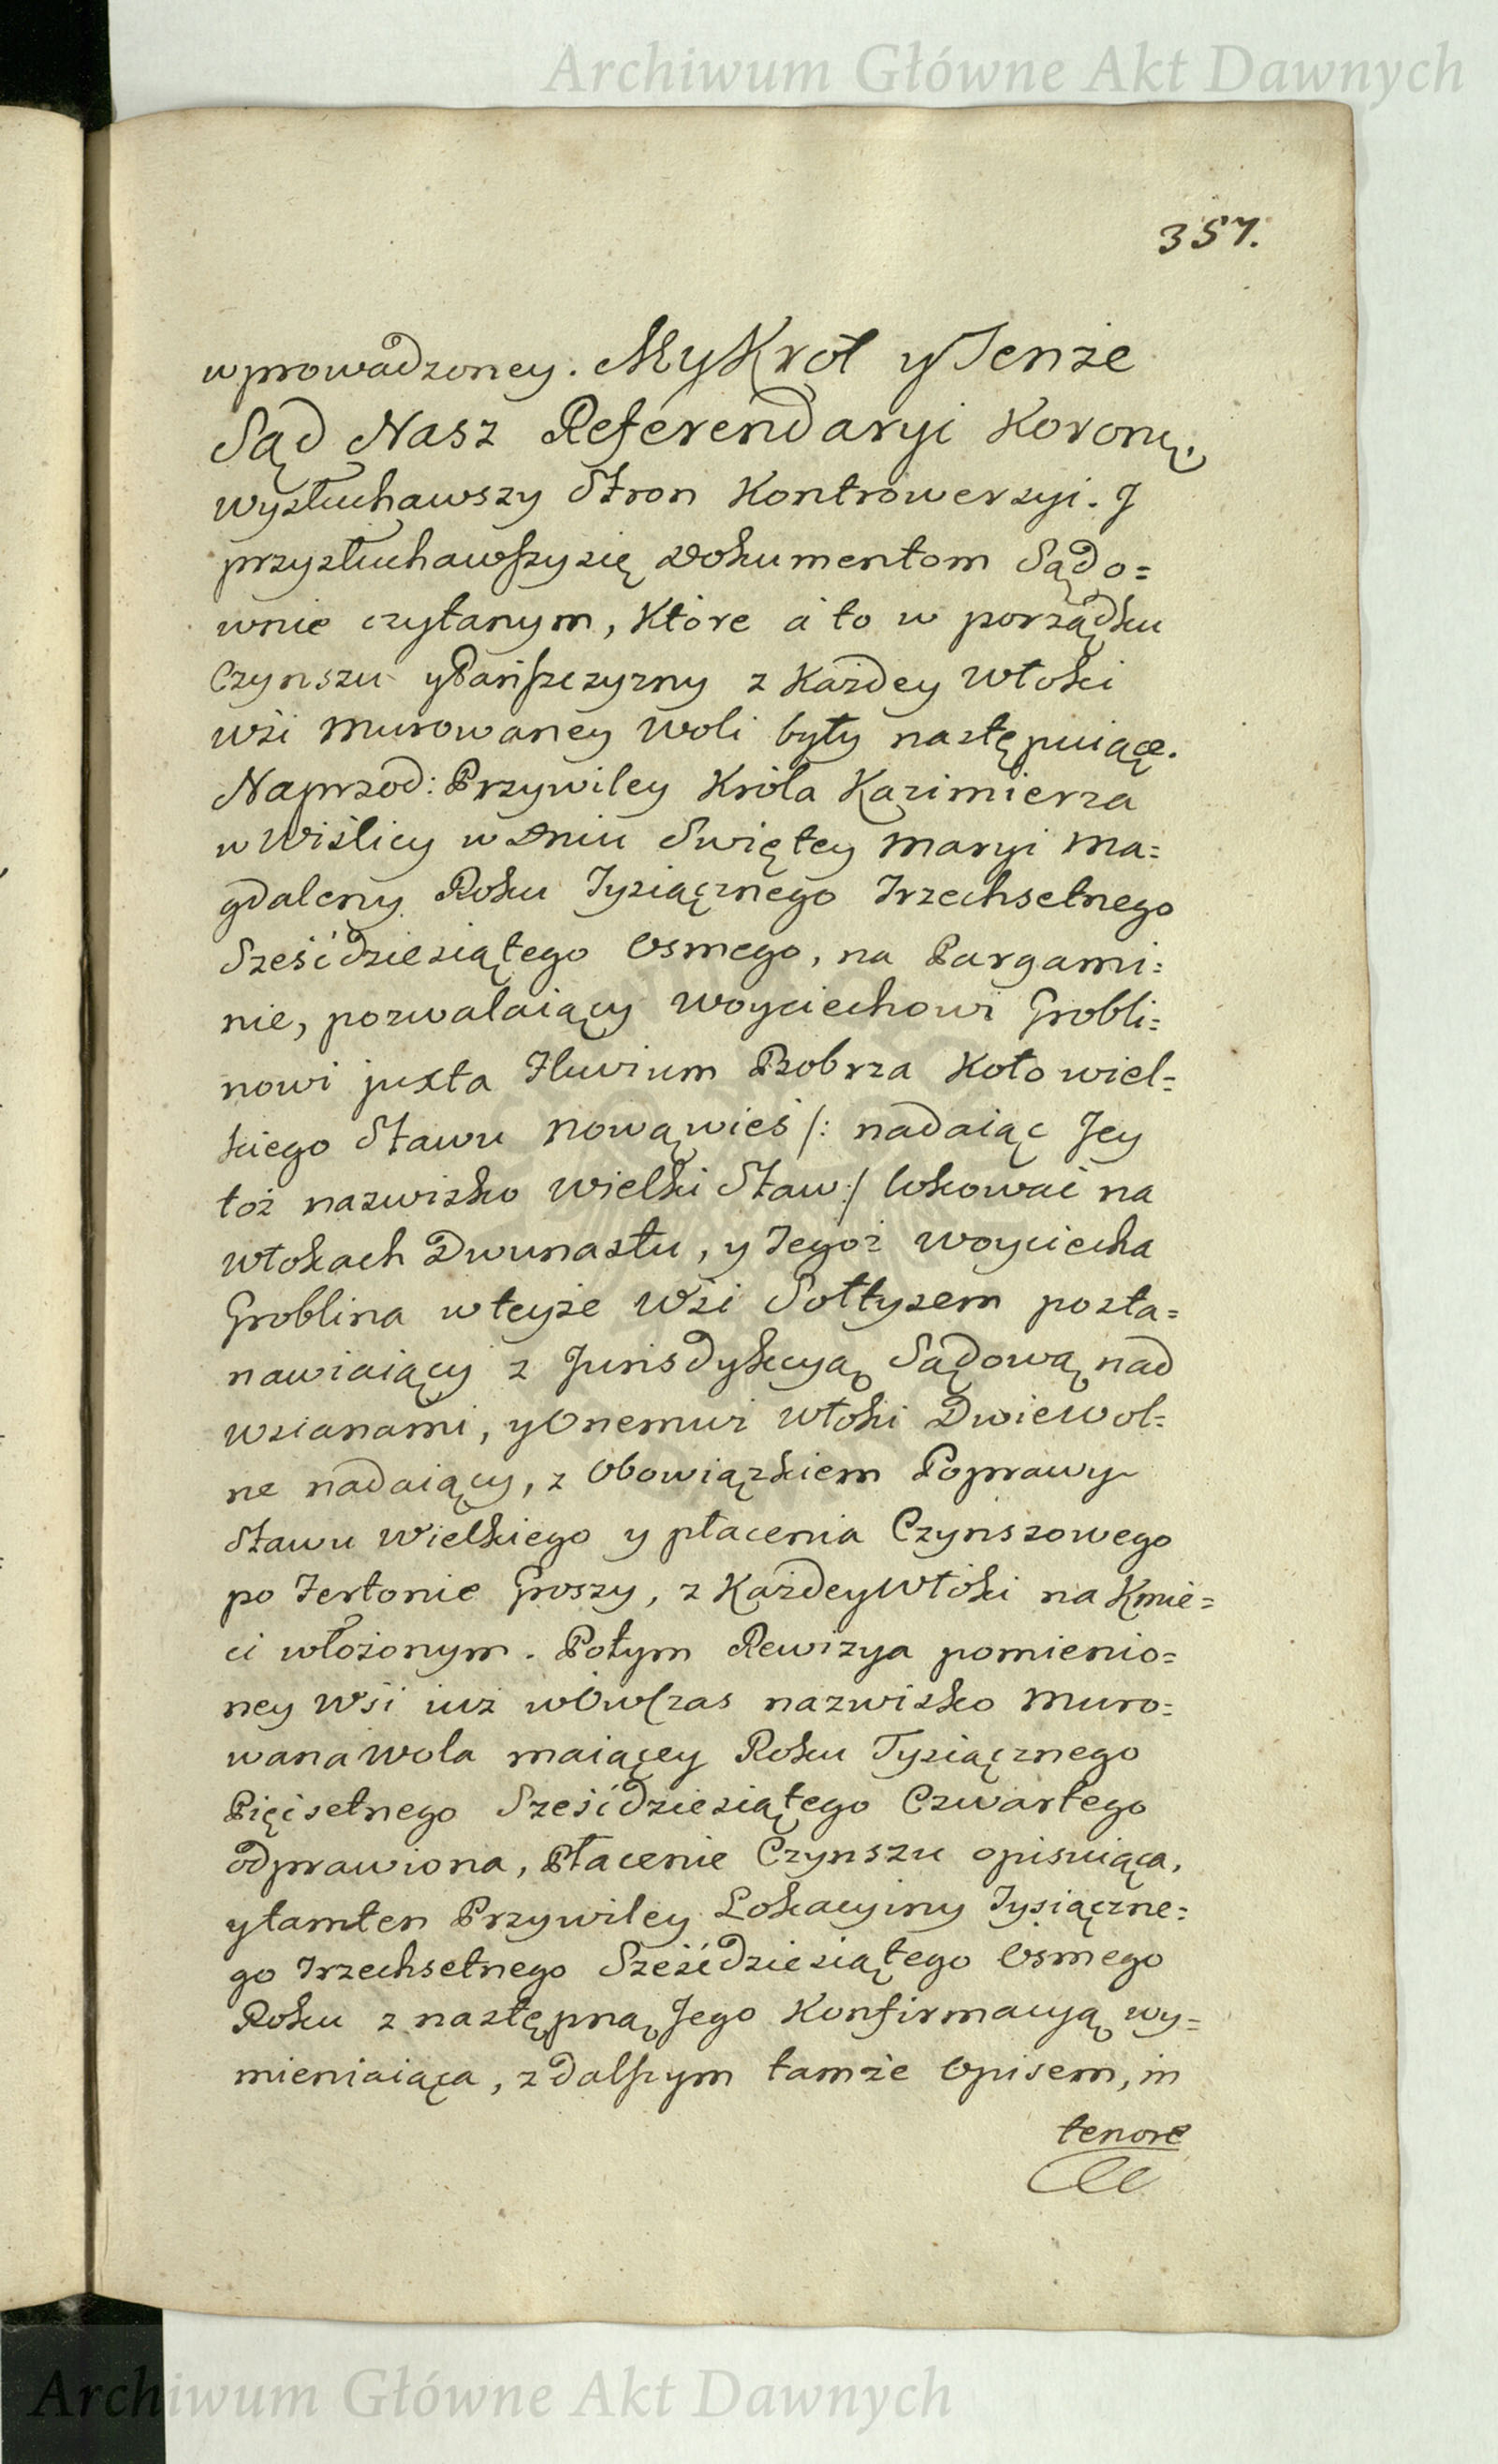 Archiwum Główne Akt Dawnych
357.
wprowadzoney. My Krol y Tenże
Sąd Nasz Referendaryi Koronę.
wysłuchawszy Stron Kontrowersyi. J
przysłuchawszysię Dokumentom Sądo=
wnie czytanym, Które á to w porządku
Czynszu y Pańszczyzny z Każdey Włoki
wsi Murowaney Woli były następuiące.
Naprzod: Przywiley Króla Kazimierza
w Wiślicy w Dniu Swiętey Maryi Ma=
gdaleny Roku Tysiącznego Trzechsetnego
Sześćdziesiątego Osmego, na Pargami=
nie, pozwalaiący Woyciechowi Grobli=
nowi juxta Fluvium Bobrza Koło wiel=
kiego Stawu Nową wieś /: nadaiąc Jey
toż nazwisko Wielki Staw :/ lokować na
Włokach Dwunastu, y Tegoż Woyciecha
Groblina w teyże Wsi Sołtysem posta=
nawiaiący z Jurisdykcyą Sądową nad
wsianami, y Onemuż Włoki Dwie Wol=
ne nadaiący, z Obowiązkiem Poprawy
Stawu Wielkiego y płacenia Czynszowego
po Fertonie Groszy, z Każdey Włoki na Kmie=
ci włożonym. Potym Rewizya pomienio=
ney Wsi iuż wówczas nazwisko Muro=
wana Wola maiącey Roku Tysiącznego
Pięćsetnego Sześćdziesiątego Czwartego
odprawiona, Płacenie Czynszu opisuiąca,
y tamten Przywiley Lokacyiny Tysiączne=
go Trzechsetnego Sześćdziesiątego Osmego
Roku z następną Jego Konfirmacyą wy=
mieniaiąca, z dalszym tamże Opisem, in
tenore
Archiwum Główne Akt Dawnych